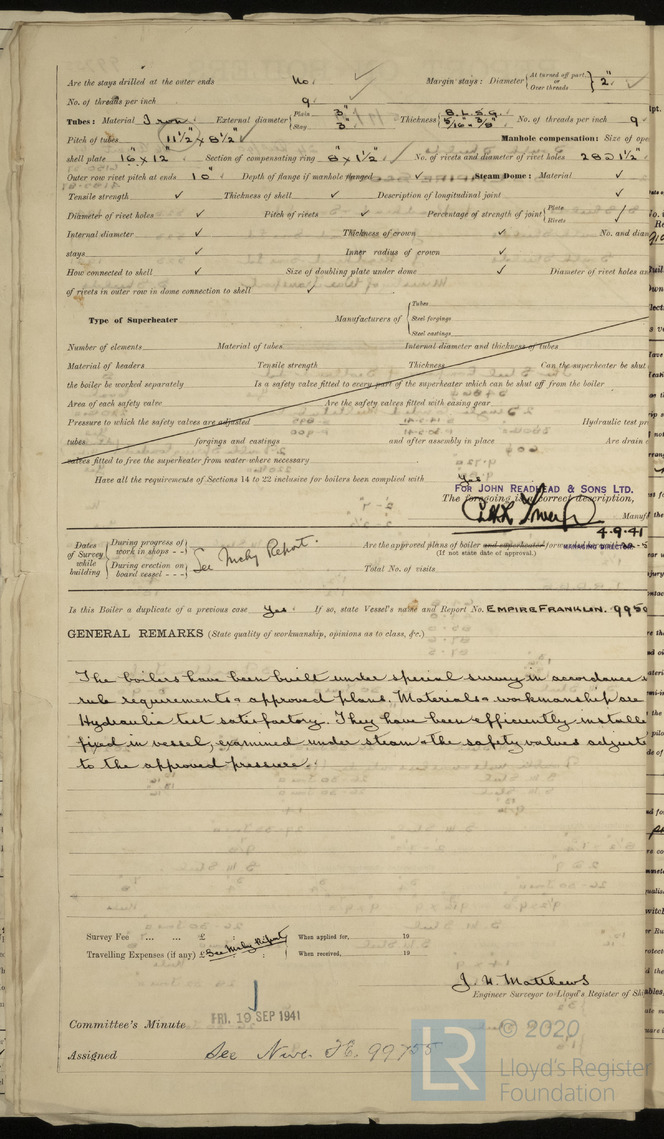 Are the stays drilled at the outer ends No. Margin stays: Diameter { At turned off part, or Over threads } 2"
No. of threads per inch 9
Tubes: Material Iron External diameter { Plain 3" Stay 3" Thickness { 8. L.S.G. 5/16" & 3/8" No. of threads per inch 9
Pitch of tubes 11½" x 8½" Manhole compensation: Size of ope
shell plate 16" x 12" Section of compensating ring 8" x 1½" No. of rivets and diameter of rivet holes 28 @ 1½"
Outer row rivet pitch at ends 10" Depth of flange if manhole flanged ✓ Steam Dome: Material ✓
Tensile strength ✓ Thickness of shell ✓ Description of longitudinal joint ✓
Diameter of rivet holes ✓ Pitch of rivets ✓ Percentage of strength of joint { Plate Rivets ✓
Internal diameter ✓ Thickness of crown ✓ No. and dian
stays ✓ Inner radius of crown ✓
How connected to shell ✓ Size of doubling plate under dome ✓ Diameter of rivet holes an
of rivets in outer row in dome connection to shell ✓
Type of Superheater Manufacturers of { Tubes Steel forgings Steel castings
Number of elements Material of tubes Internal diameter and thickness of tubes
Material of headers Tensile strength Thickness Can the superheater be shut
the boiler be worked separately Is a safety valve fitted to every part of the superheater which can be shut off from the boiler
Area of each safety valve Are the safety valves fitted with easing gear
Pressure to which the safety valves are adjusted Hydraulic test pr
tubes, forgings and castings and after assembly in place Are drain
valves fitted to free the superheater from water where necessary
Have all the requirements of Sections 14 to 22 inclusive for boilers been complied with Yes
FOR JOHN READHEAD & SONS LTD.
The foregoing is a correct description,
Manuf
4.9.41
MANAGING DIRECTOR
Dates of Survey while building { During progress of work in shops - - During erection on board vessel - - - } See Mchy Report.
Are the approved plans of boiler and superheater forwarded
(If not state date of approval.)
Total No. of visits
Is this Boiler a duplicate of a previous case Yes. If so, state Vessel's name and Report No. EMPIRE FRANKLIN. 995
GENERAL REMARKS (State quality of workmanship, opinions as to class, &c.)
The boilers have been built under special survey in accordance
rule requirements & approved plans. Materials & workmanship are
Hydraulic test satisfactory. They have been efficiently installe
fixed in vessel, examined under steam & the safety valves adjuste
to the approved pressure.
Survey Fee ... ... £ : : When applied for, 19
Travelling Expenses (if any) £ See Mchy Report When received, 19
J. H. Matthews
Engineer Surveyor to Lloyd's Register of Sh
Committee's Minute FRI. 19 SEP 1941
Assigned See Nwc. J.E. 99755
© 2020
LR Lloyd's Register
Foundation